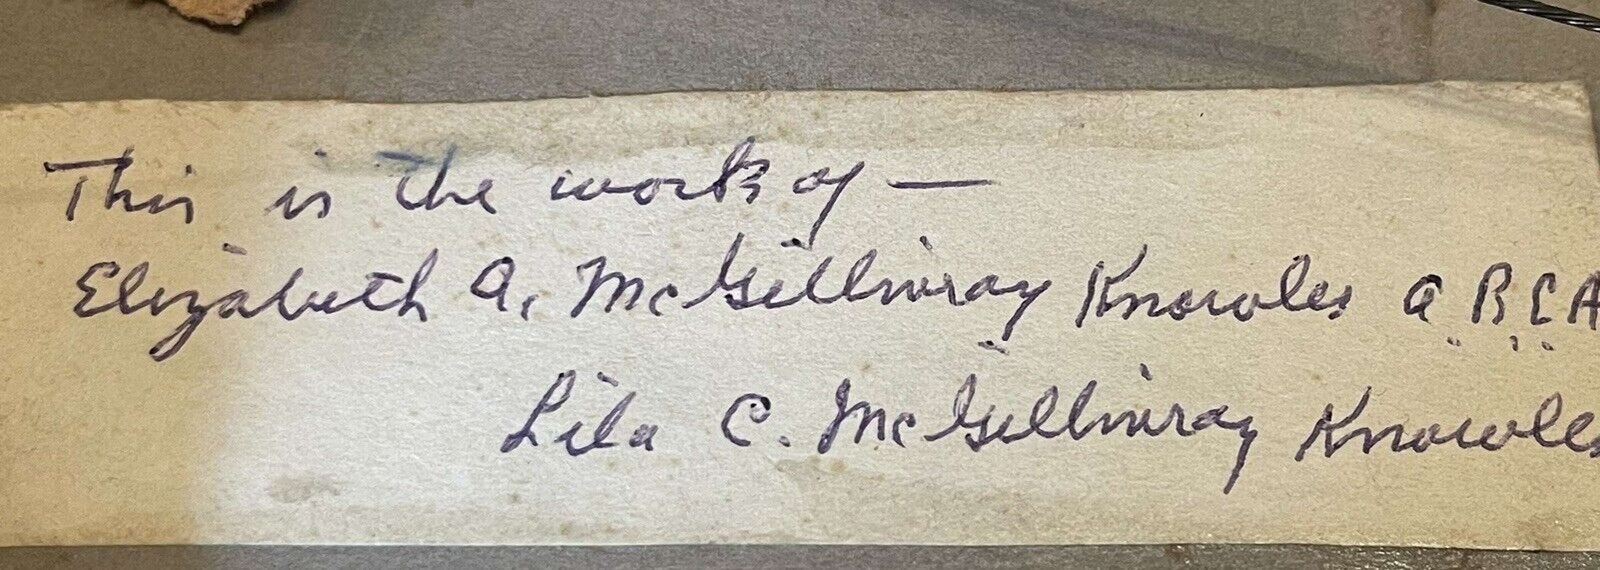 This is the work of —
Elizabeth A. McGillivray Knowles A.R.C.A
Lila C. McGillivray Knowles